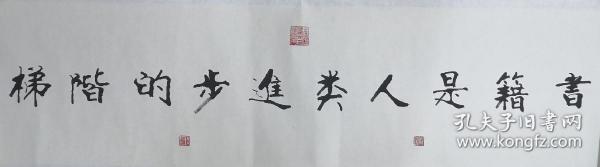 書籍是人类進步的階梯
孔夫子旧書网
kongfz.com